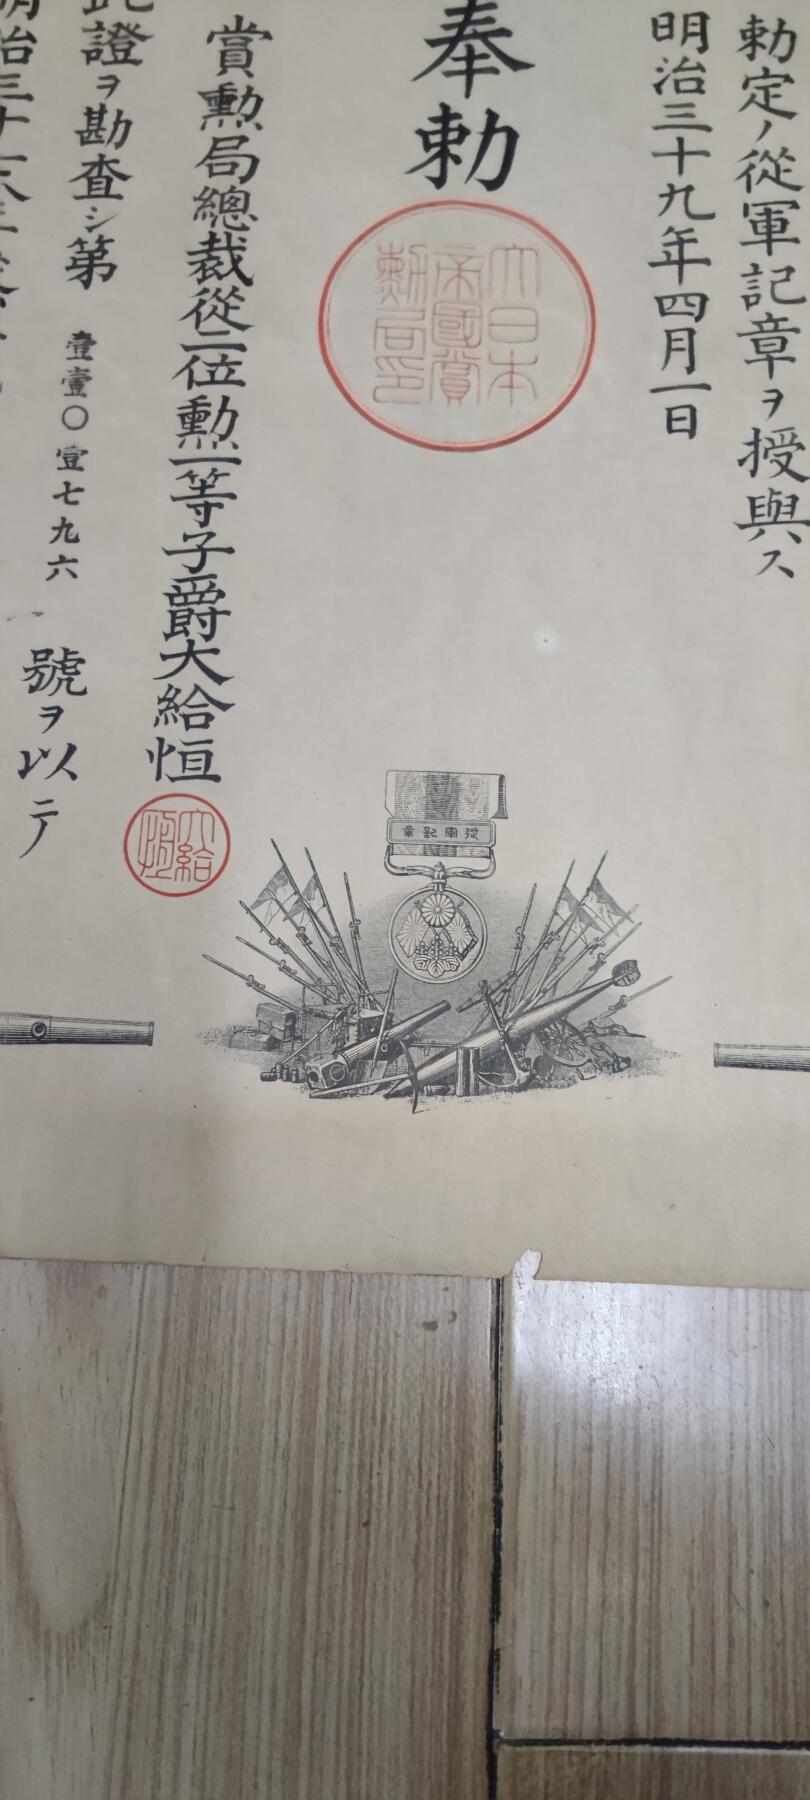 勅定ノ從軍記章ヲ授與ス
明治三十九年四月一日
奉勅
大日本
帝國賞
勲局印
賞勲局總裁從二位勲一等子爵大給恒
大給
恒
此證ヲ勘査シ第壹壹〇壹七九六號ヲ以テ
明治三十
從軍記章